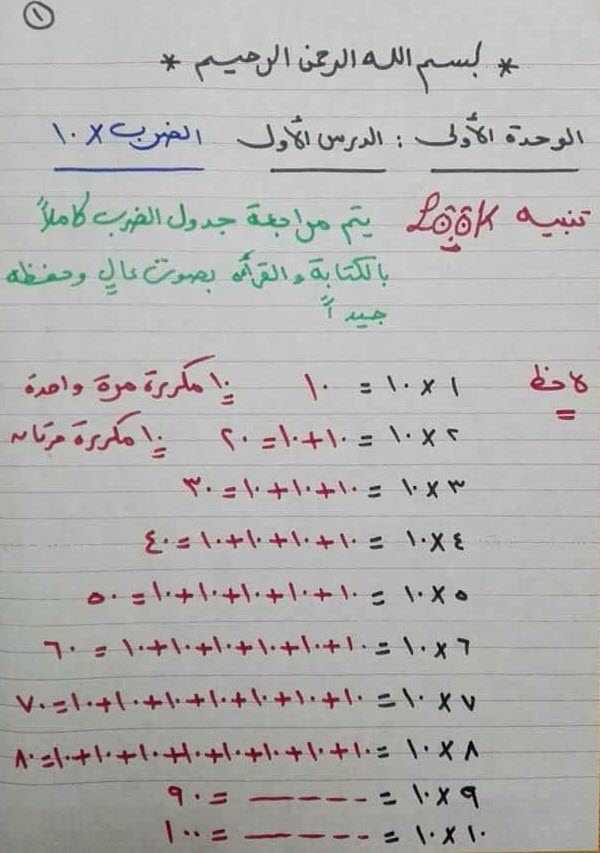 ١
* بسم الله الرحمن الرحيم *
الوحدة الأولى : الدرس الأول الضرب × ١٠
تنبيه LOOK يتم مراجعة جدول الضرب كاملاً
بالكتابة والقرأئه بصوت عالٍ وحفظه
جيداً
لاحظ ١ × ١٠ = ١٠ ١٠ مكررة مرة واحدة
٢ × ١٠ = ١٠+١٠ = ٢٠ ١٠ مكررة مرتان
٣ × ١٠ = ١٠+١٠+١٠ = ٣٠
٤ × ١٠ = ١٠+١٠+١٠+١٠ = ٤٠
٥ × ١٠ = ١٠+١٠+١٠+١٠+١٠ = ٥٠
٦ × ١٠ = ١٠+١٠+١٠+١٠+١٠+١٠ = ٦٠
٧ × ١٠ = ١٠+١٠+١٠+١٠+١٠+١٠+١٠ = ٧٠
٨ × ١٠ = ١٠+١٠+١٠+١٠+١٠+١٠+١٠+١٠ = ٨٠
٩ × ١٠ = ----- = ٩٠
١٠ × ١٠ = ----- = ١٠٠